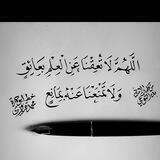 اللَّهُمَّ لَا تُعِقْنَا عَنِ الْعِلْمِ بِعَائِقٍ
وَلَا تَمْنَعْنَا عَنْهُ بِمَانِعٍ